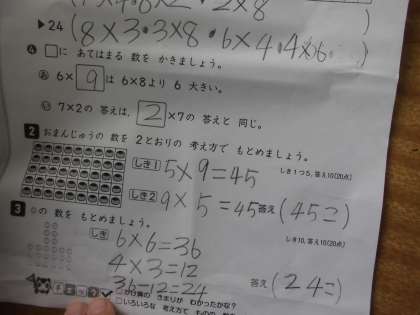 ▶24 (8×3・3×8・6×4・4×6)
4 □に あてはまる 数を かきましょう。
あ 6×9は 6×8より 6 大きい。
い 7×2の 答えは、2×7の 答えと 同じ。
2 おまんじゅうの 数を 2とおりの 考え方で もとめましょう。
しき1 5×9=45
しき1つ5、答え10(20点)
しき2 9×5=45 答え(45こ)
3 ○の 数を もとめましょう。
しき10、答え10(20点)
しき 6×6=36
4×3=12
36-12=24 答え(24こ)
チェック